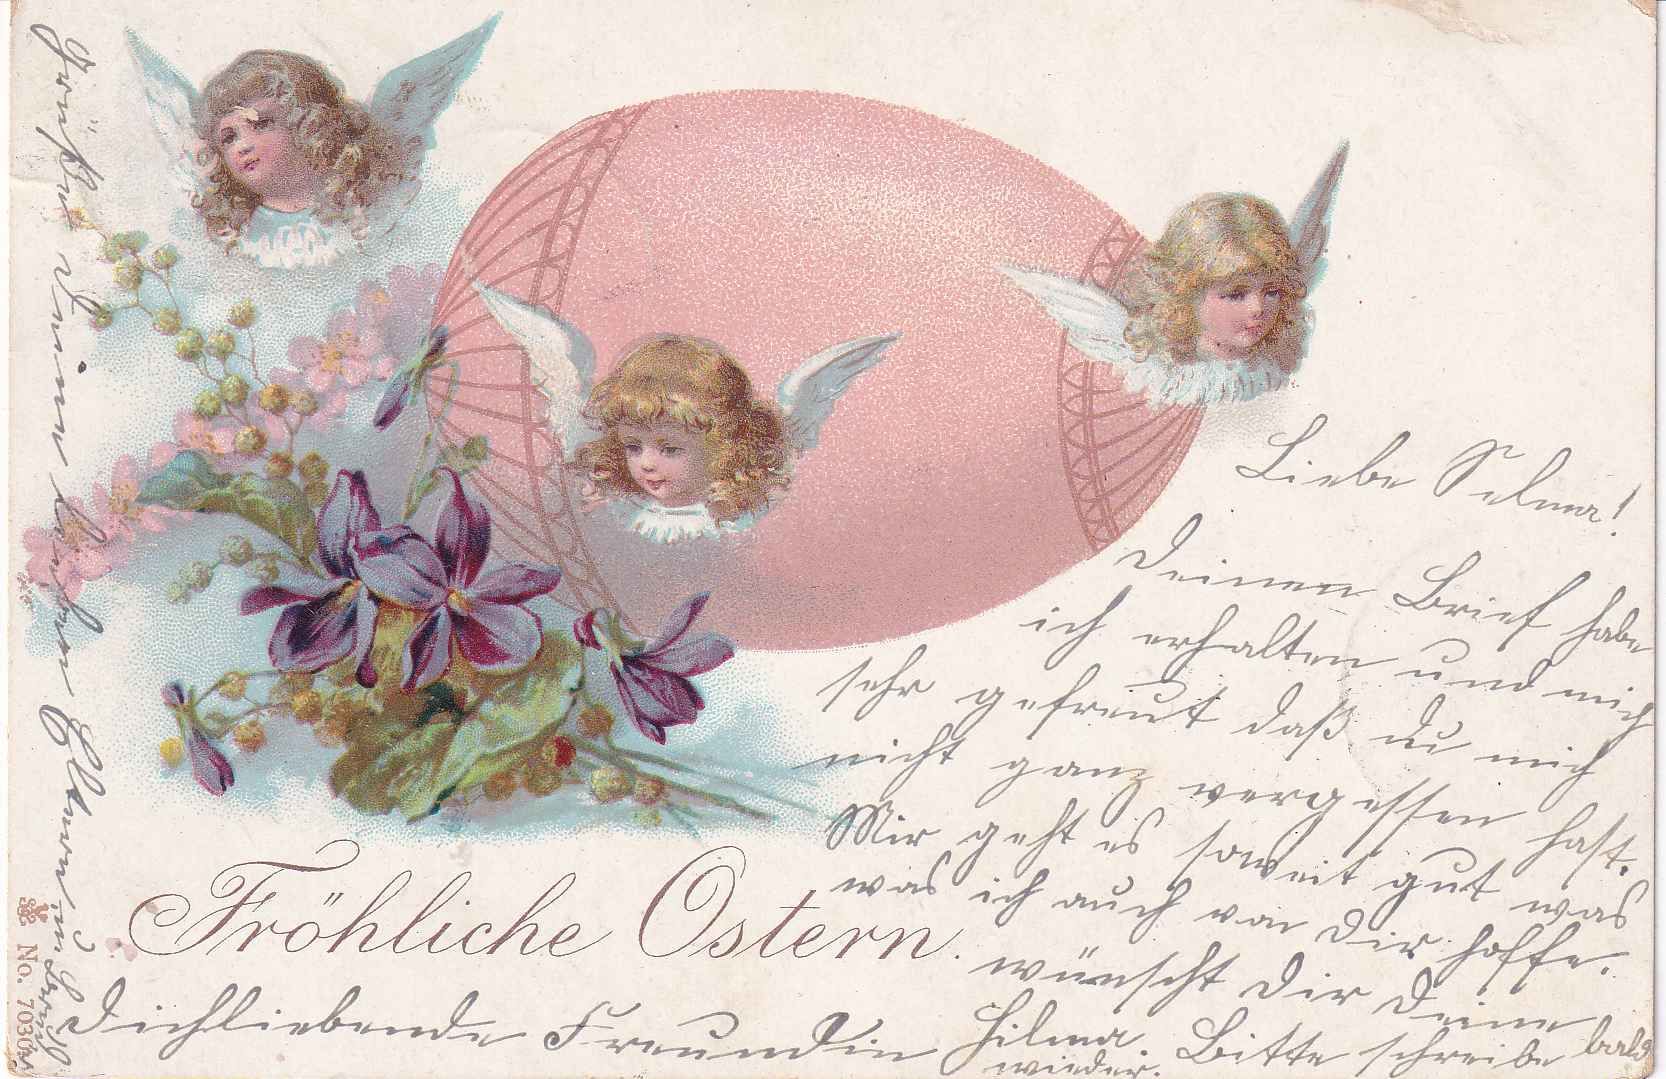 Liebe Selma!
Deinen Brief habe
ich erhalten und mich
sehr gefreut daß du mich
nicht ganz vergessen hast.
Mir geht es soweit gut was
was ich auch von Dir hoffe.
wünscht Dir Deine
Dichliebende Freundin Hilma
Bitte schreibe bald
wieder.
Fröhliche Ostern.
Grüße Deine lieben Eltern und
No. 7030